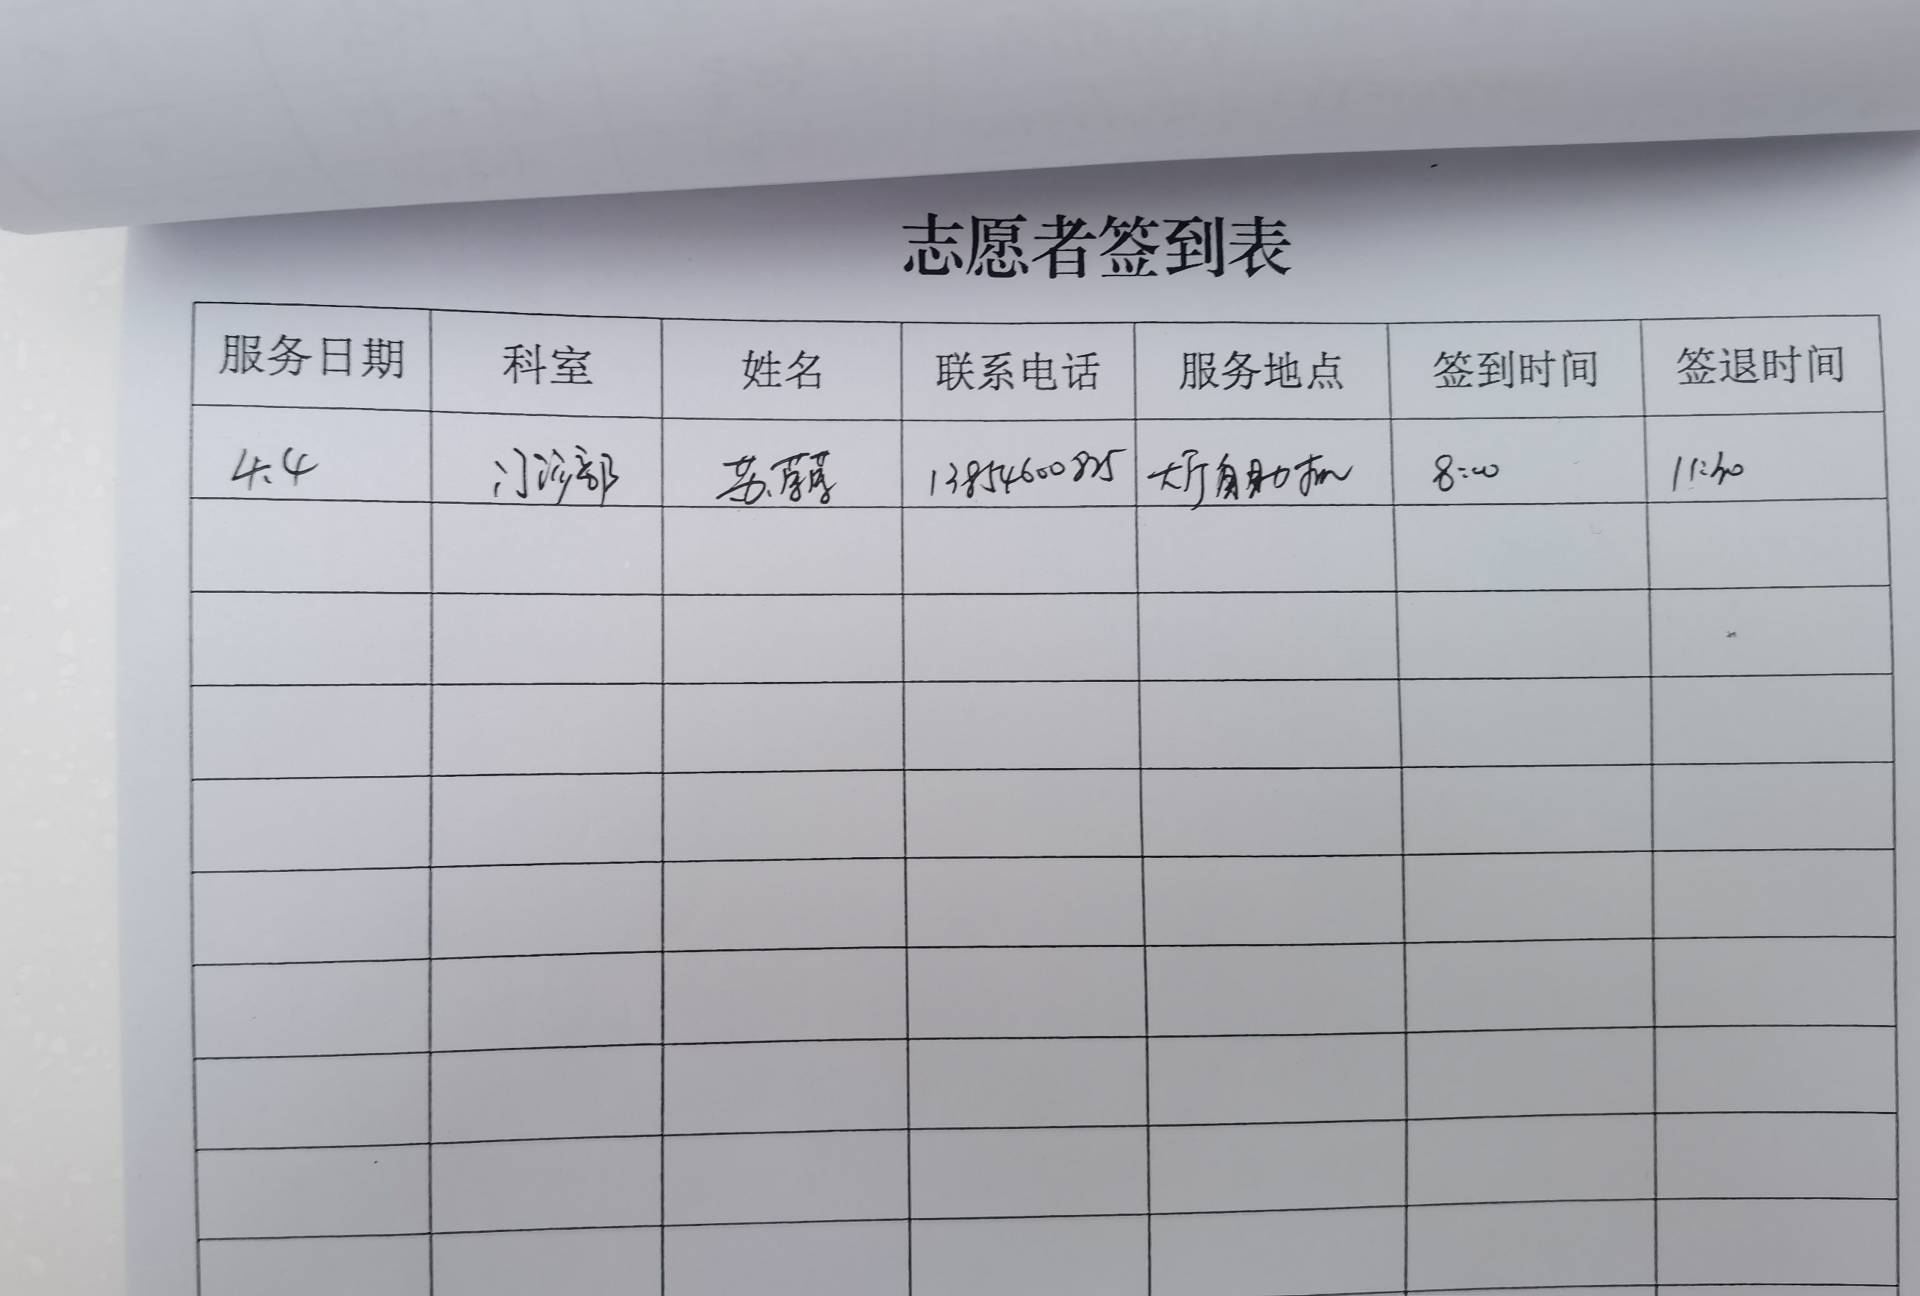 志愿者签到表
服务日期 科室 姓名 联系电话 服务地点 签到时间 签退时间
4.4 门诊部 苏 13854600825 大厅自助机 8:00 11:30